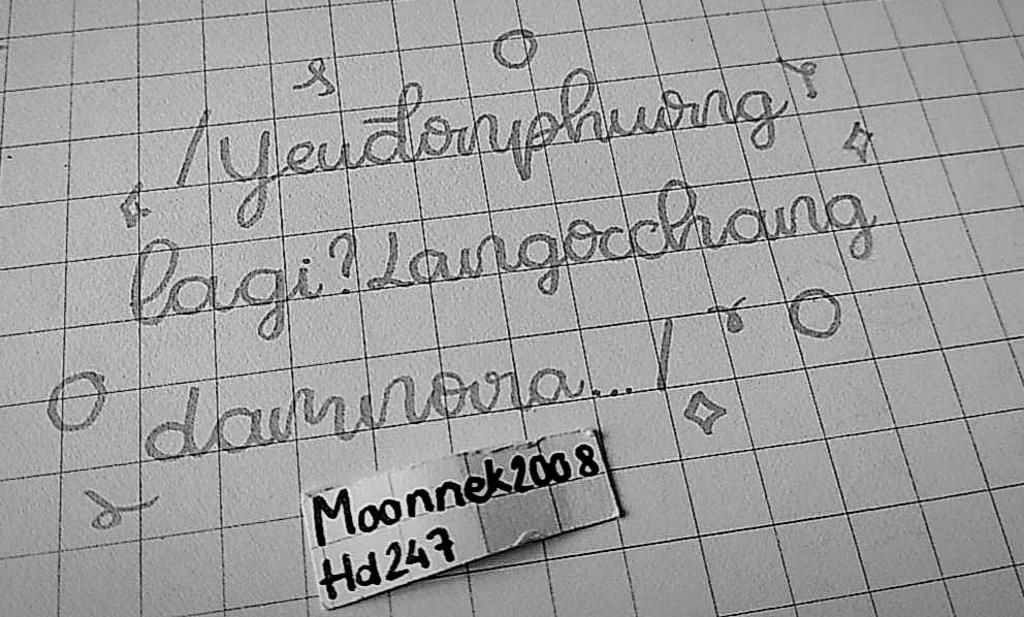 /yeuđonphương
lagi?Langocchang
damnoira.../
Moonnek2008
Hd247